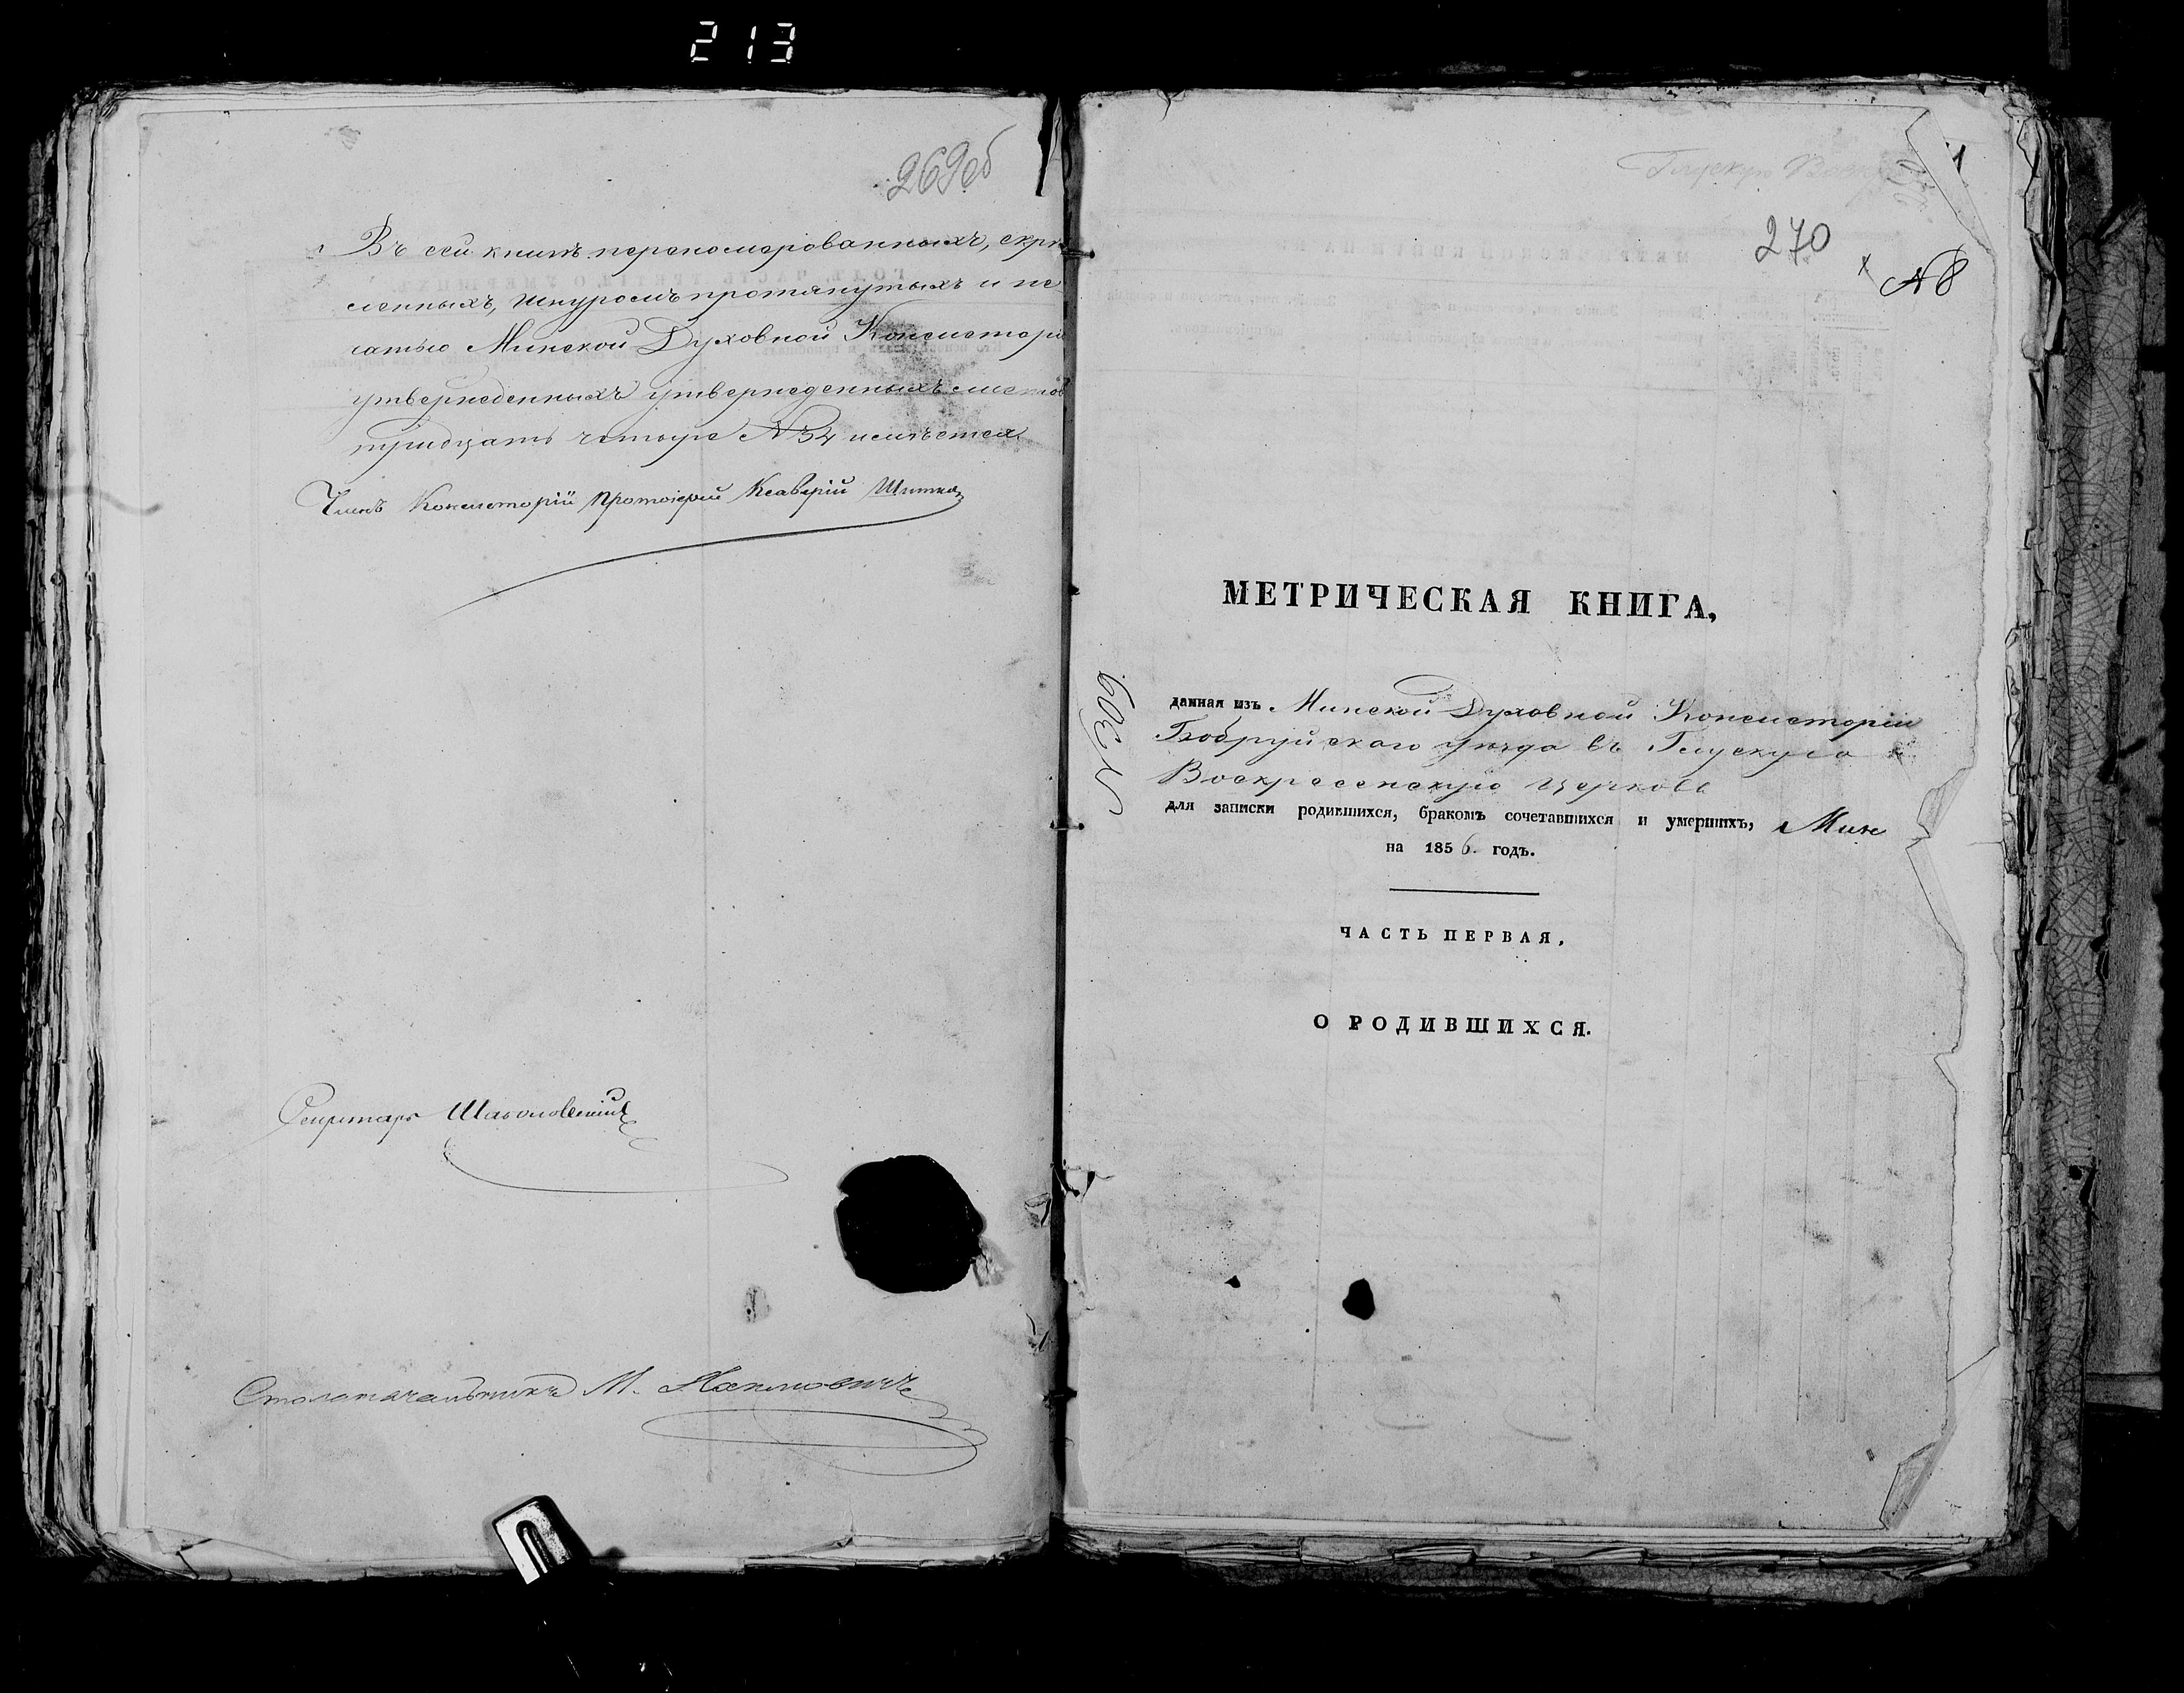 213
269об
Въ сей книгѣ переномерованныхъ, скрѣ
пленныхъ, шнуромъ протянутыхъ и пе
чатью Минской Духовной Консисторіи
утвержденныхъ утвержденныхъ листовъ
тридцать четыре №34 имѣется.
Членъ Консисторіи Протоіерей Ксаверій
Секретарь
Столоначальникъ М.
Глускую
1
270
№ 8
МЕТРИЧЕСКАЯ КНИГА,
данная изъ Минской Духовной Консисторіи
Бобруйскаго уѣзда въ Глускую
Воскресенскую церковь
для записки родившихся, бракомъ сочетавшихся и умершихъ,
на 1856. годъ.
ЧАСТЬ ПЕРВАЯ,
О РОДИВШИХСЯ.